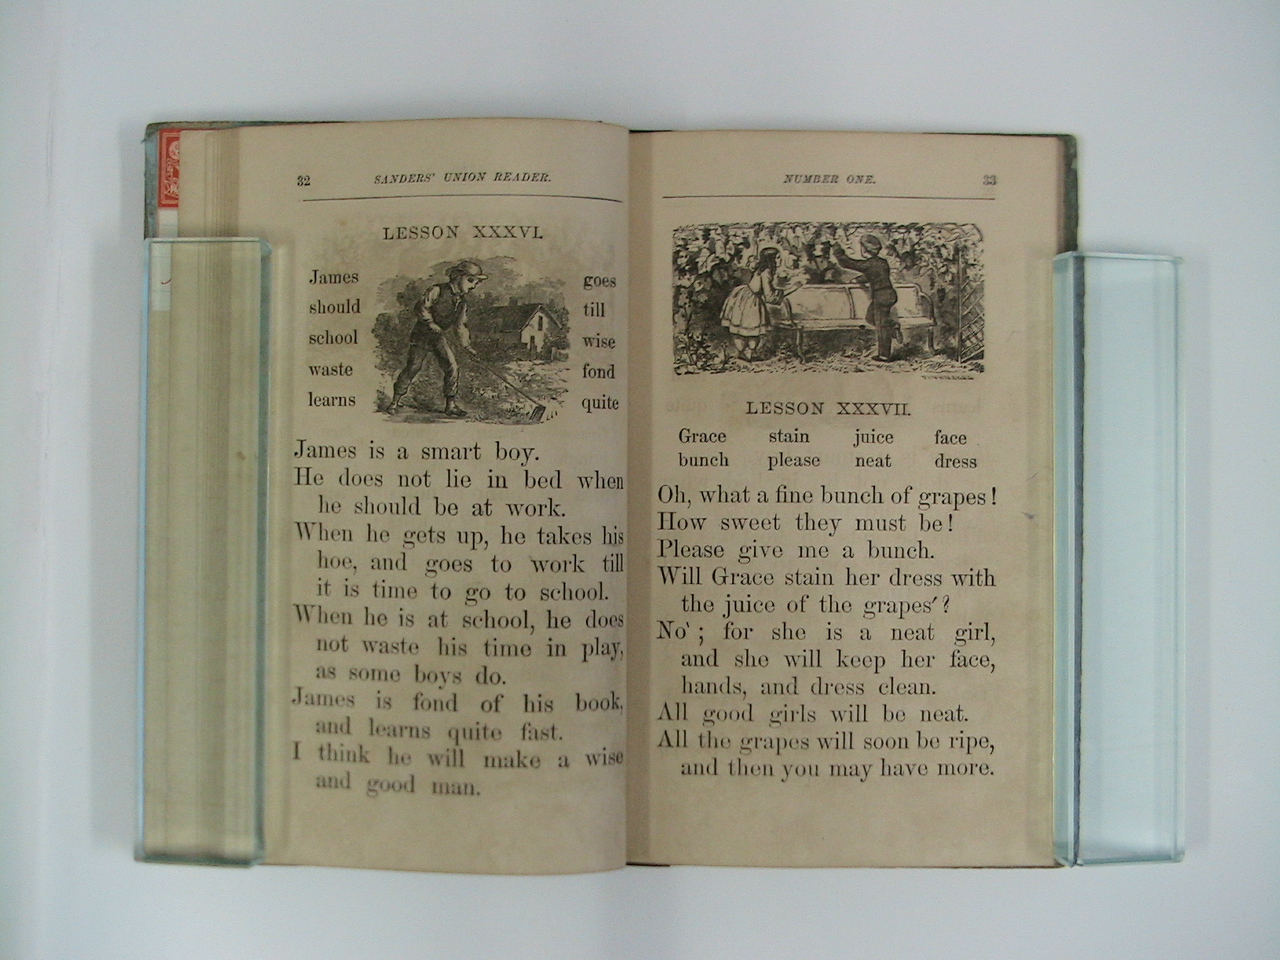 32 SANDERS' UNION READER.
LESSON XXXVI.
James
should
school
waste
learns
goes
till
wise
fond
quite
James is a smart boy.
He does not lie in bed when
he should be at work.
When he gets up, he takes his
hoe, and goes to work till
it is time to go to school.
When he is at school, he does
not waste his time in play,
as some boys do.
James is fond of his book,
and learns quite fast.
I think he will make a wise
and good man.
NUMBER ONE. 33
LESSON XXXVII.
Grace stain juice face
bunch please neat dress
Oh, what a fine bunch of grapes!
How sweet they must be!
Please give me a bunch.
Will Grace stain her dress with
the juice of the grapes′?
No‵; for she is a neat girl,
and she will keep her face,
hands, and dress clean.
All good girls will be neat.
All the grapes will soon be ripe,
and then you may have more.